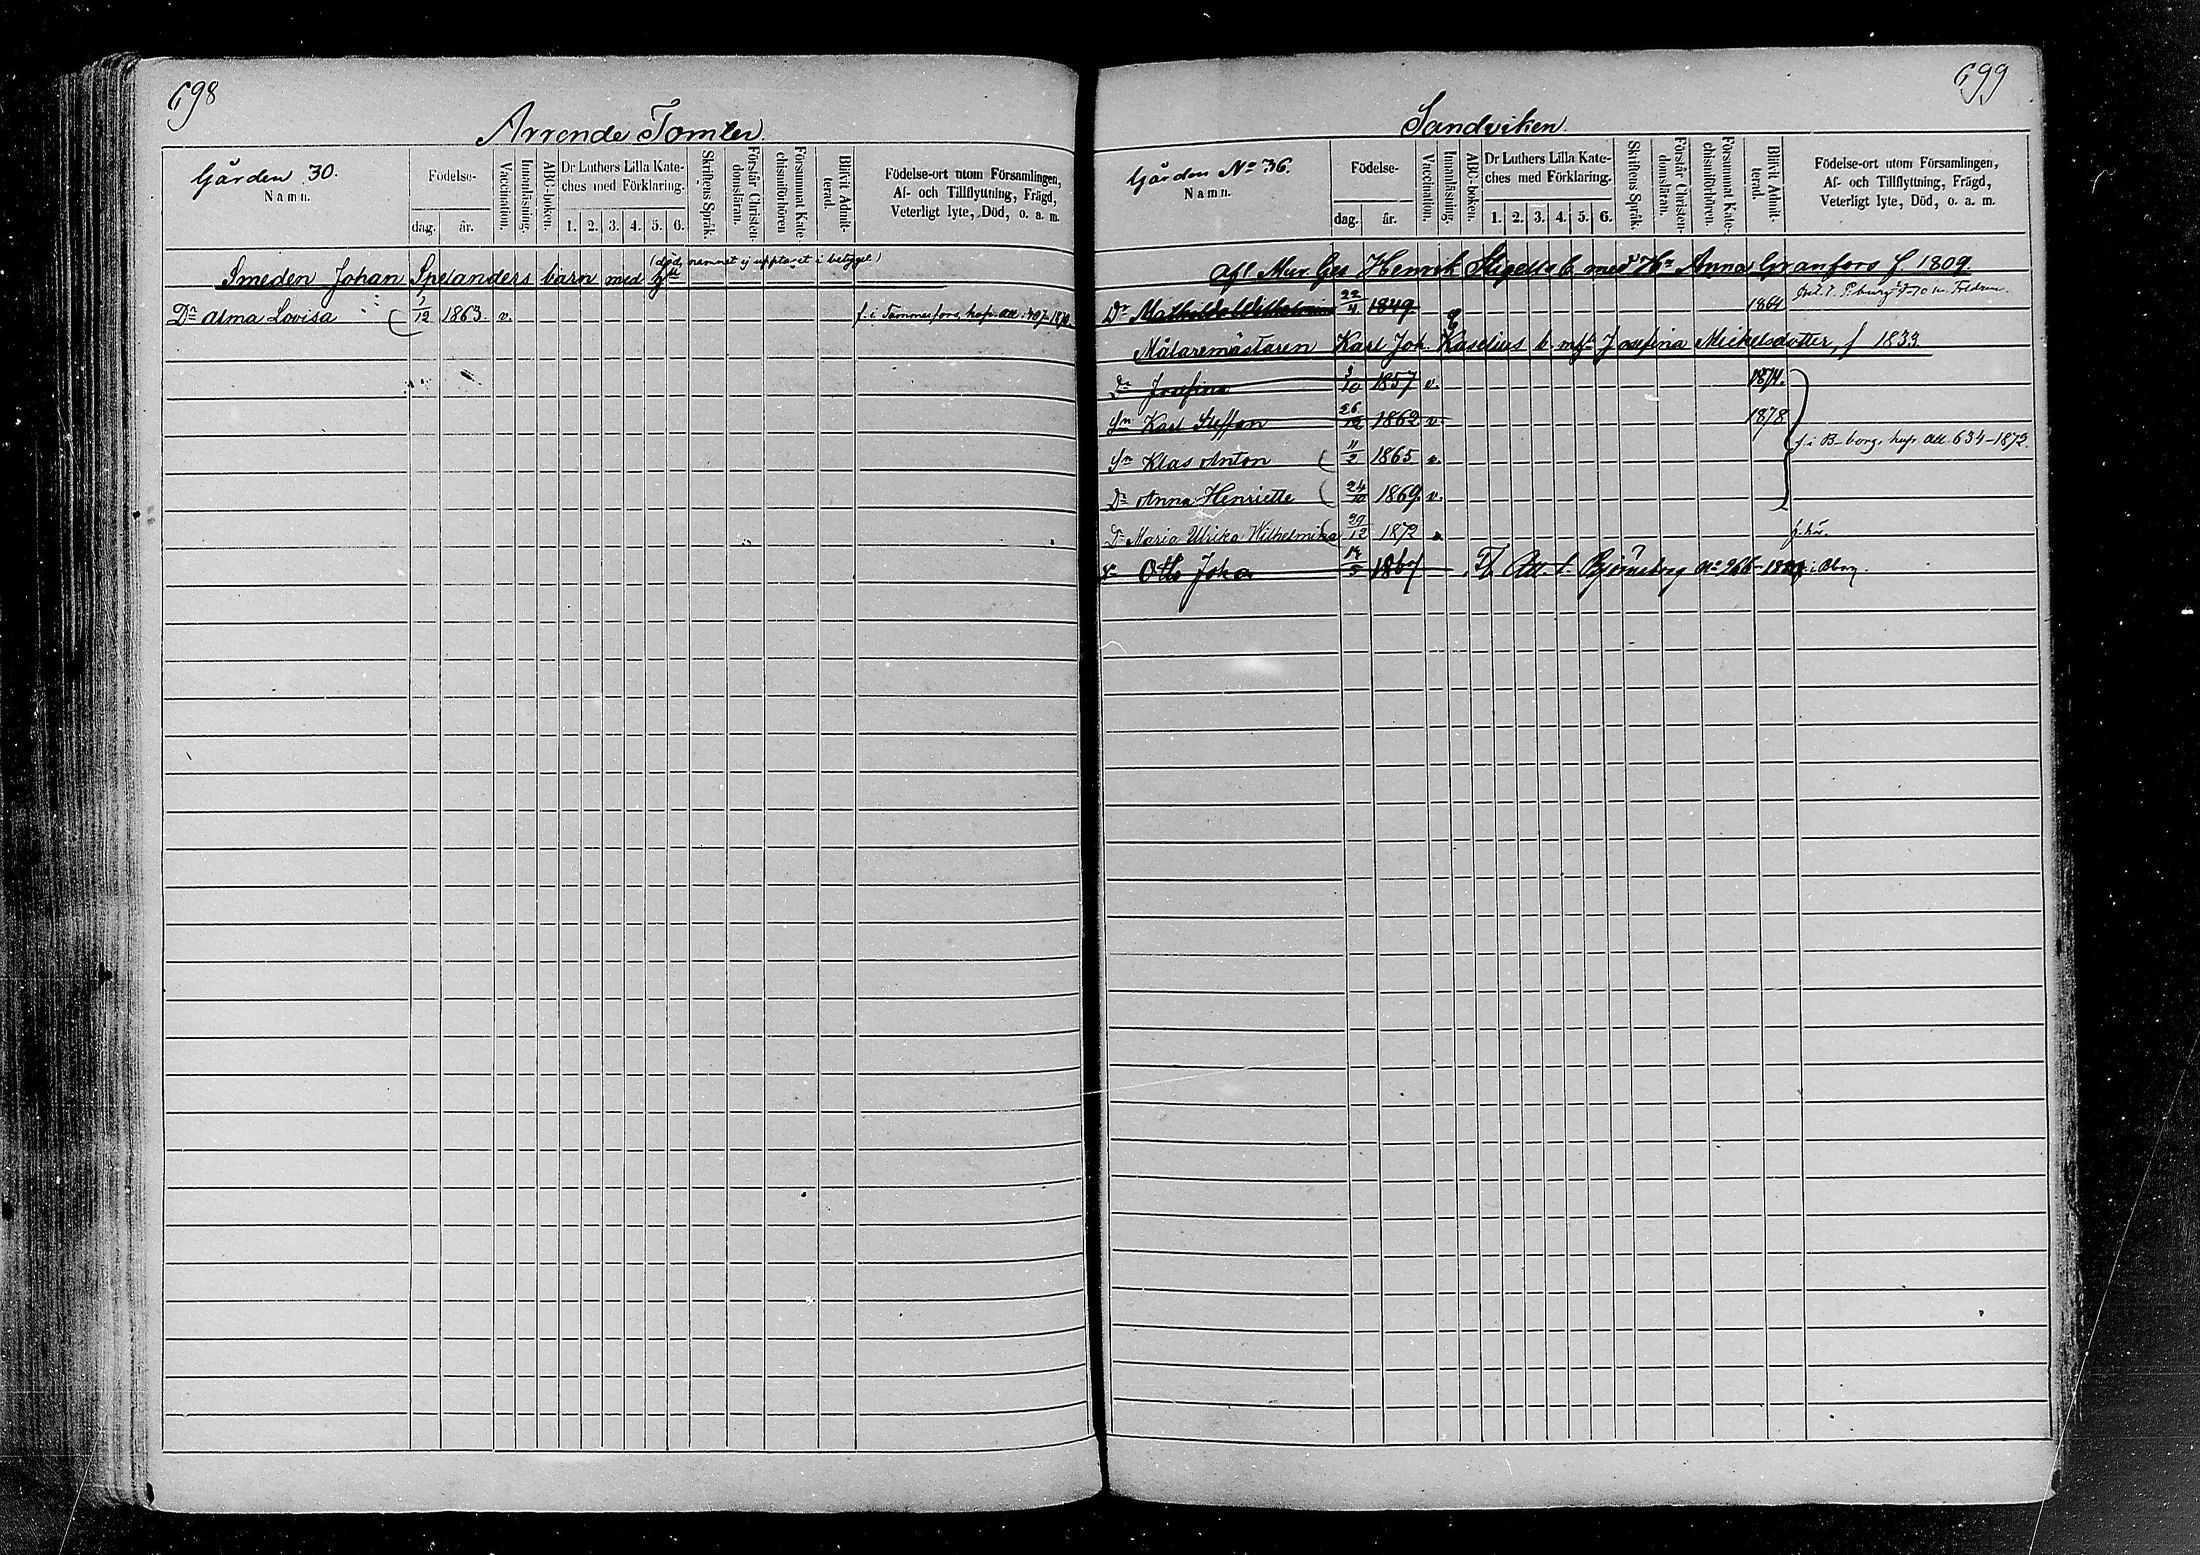 698
Arrende Tomter.
Gården 30.
Namn.
Födelse-
dag. år.
Vaccination.
Innanläsning.
ABC-boken.
Dr Luthers Lilla Kate-
ches med Förklaring.
1. 2. 3. 4. 5. 6.
Skriftens Språk.
Förstår Christen-
domsläran.
Försummat Kate-
chismiförhören
Blifvit Admit-
terad.
Födelse-ort utom Församlingen,
Af- och Tillflyttning, Frägd,
Veterligt lyte, Död, o. a. m.
namnet ej upptaget i betyget)
Smeden Johan Spelanders barn med
Dr Alma Lovisa 1/12 1863 v. f. i Tammerfors,
699
Sandviken.
Gården No 36.
Namn.
Födelse-
dag. år.
Vaccination.
Innanläsning.
ABC-boken.
Dr Luthers Lilla Kate-
ches med Förklaring.
1. 2. 3. 4. 5. 6.
Skriftens Språk.
Förstår Christen-
domsläran.
Försummat Kate-
chismiförhören.
Blifvit Admit-
terad.
Födelse-ort utom Församlingen,
Af- och Tillflyttning, Frägd,
Veterligt lyte, Död, o. a. m.
Afl Mur Ges Henrik b. med Hn Anna Granfors f 1809
Dr Mathilda Wilhelmina 22/4 1849 1864
Målaremästaren Karl Joh Kaselius b m Josefina Mickelsdotter, f 1833.
Dr Josefina 1857 v. 1874.
Sn Karl Steffan 26/12 1862 v 1878
Sn Klas Anton 11/2 1865 v. f. i B-borg, 634-1873.
Dr Anna Henriette 24/10 1869 v.
Dr Maria Ulrika Wilhelmina 29/12 1872 f. här.
Otto Joha Björneborg No 266